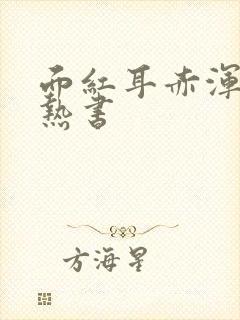 面紅耳赤渾
熱書
方海星